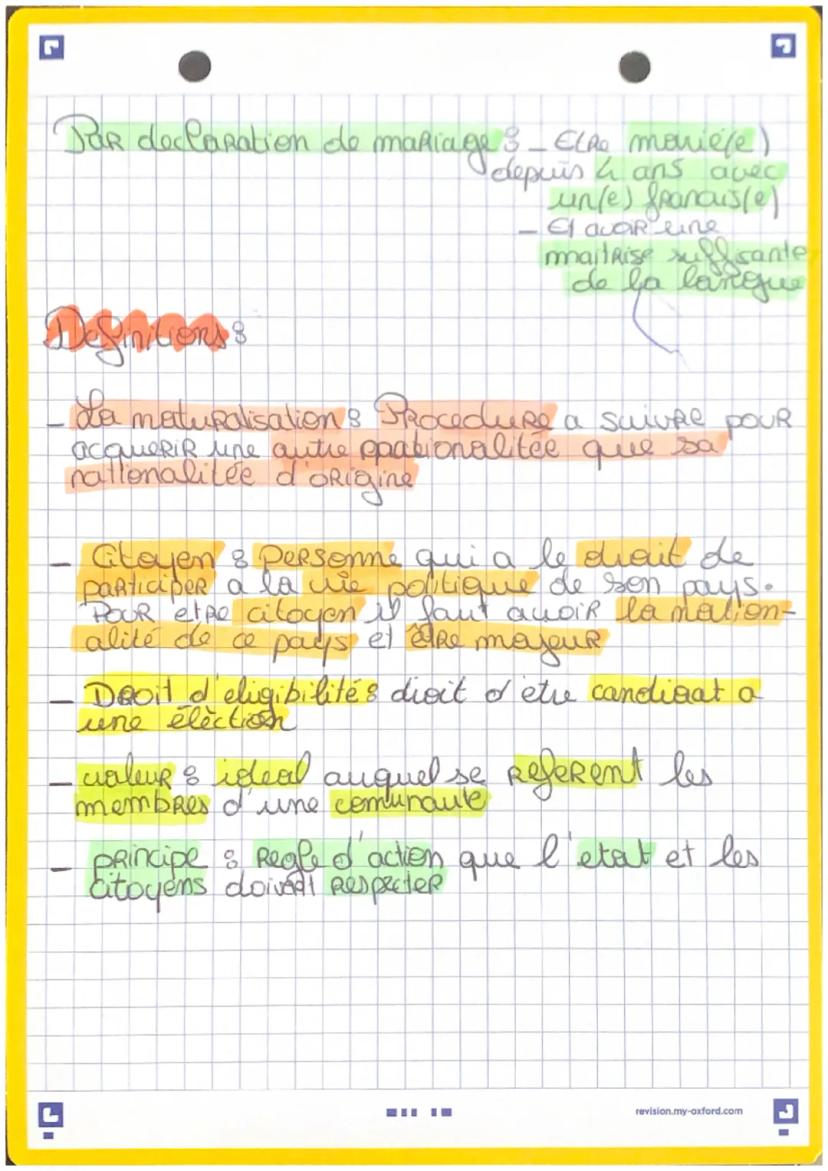 Par declaration de mariage : - Etre marié(e)
depuis 4 ans avec
un(e) français(e)
- Et avoir une
maitrise suffisante
de la langue
Definitions :
- La naturalisation : Procedure a suivre pour
acquerir une autre nationalitée que sa
nationalitée d'origine
- Citoyen : personne qui a le droit de
participer a la vie politique de son pays.
Pour etre citoyen il faut avoir la nation-
alité de ce pays et être majeur
- Droit d'eligibilité : droit d'etre candidat a
une élection
- valeur : ideal auquel se referent les
membres d'une comunaute
- principe : Regle d'action que l'etat et les
citoyens doivent respecter
revision.my-oxford.com